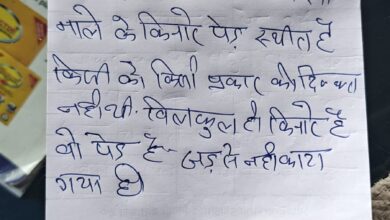 नाले के किनारे पेड़ स्थीत है
किसी को किसी प्रकार की दिक्कत
नही थी. बिलकुल ही किनारे है
वो पेड़ है जड़ से नही काटा
गया है